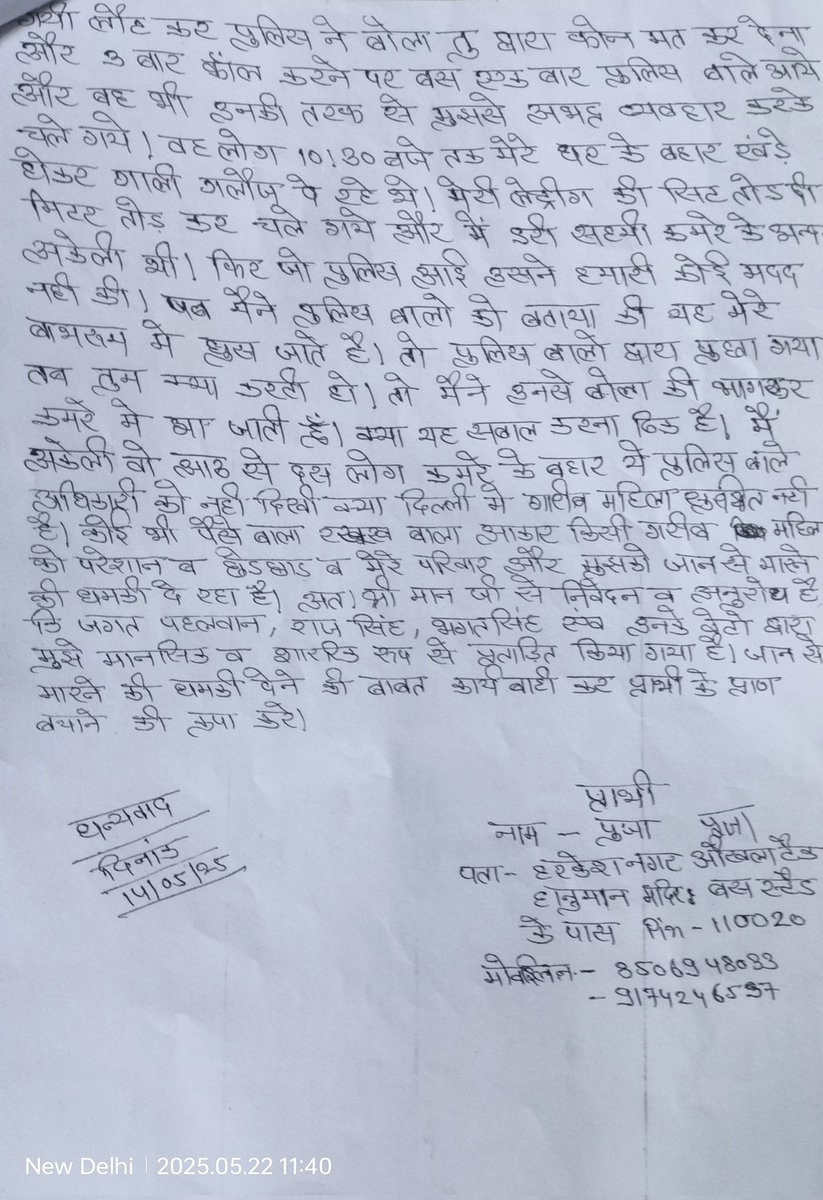 गयी लौट कर पुलिस ने बोला तु द्वारा फोन मत कर देना
और 3 बार कॉल करने पर बस एक बार पुलिस वाले आये
और वह भी इनकी तरफ से मुझसे अभद्र व्यवहार करके
चले गये। वह लोग 10:30 बजे तक मेरे घर के बहार खड़े
होकर गाली गलौज दे रहे थे। मेरी लेट्रीग की सिट तोड दी
मिटर तोड़ कर चले गये और में डरी सहमी कमरे के
अकेली थी। फिर जो पुलिस आई उसने हमारी कोई मदद
नही की। जब मैने पुलिस वालो को बताया की यह मेरे
बाथरूम मे घुस जाते है। तो पुलिस वालो द्वारा पुछा गया
तब तुम क्या करती हो। तो मैने इनसे बोला की भागकर
कमरे मे आ जाती हूँ। क्या यह सवाल करना ठिक है। मैं
अकेली वो आठ से दस लोग कमरे के बहार थे पुलिस वाले
अधिकारी को नही दिखी क्या दिल्ली मे गरीब महिला सुरक्षित नही
है। कोई भी पैसे वाला वाला आकार किसी गरीब
को परेशान व छेडछाड व मेरे परिवार और मुझको जान से मारने
की धमकी दे रहा है। अत। श्री मान जी से निवेदन व अनुरोध है
कि जगत पहलवान, राज सिंह, भगतसिंह एव इनके बेटो द्वारा
मुझे मानसिक व शाररिक रूप से प्रताडित किया गया है। जान से
मारने की धमकी देने की बाबत कार्य वाही कर प्रार्थी के प्राण
बचाने की कृपा करे।
धन्यवाद
दिनांक
14/05/25
प्रार्थी
नाम - पुजा पूजा
पता- हरकेश नगर ओखला टैंक
हानुमान मंदिर बस स्टैंड
के पास पिन - 110020
- 8506948033
- 9174246597
New Delhi | 2025.05.22 11:40